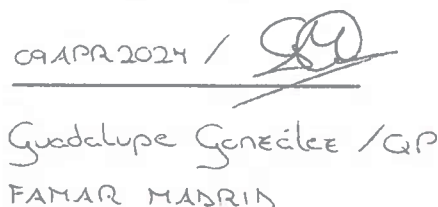 09 APR 2024 /
Guadalupe González / QP
FAMAR MADRID